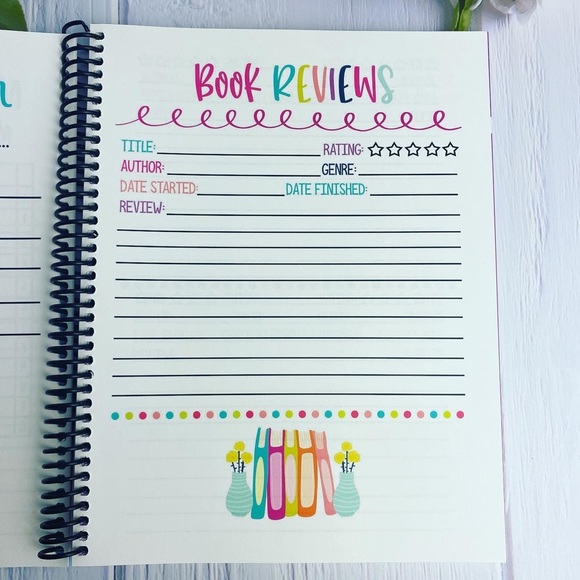 Book REVIEWS
TITLE: RATING:
AUTHOR: GENRE:
DATE STARTED: DATE FINISHED:
REVIEW: